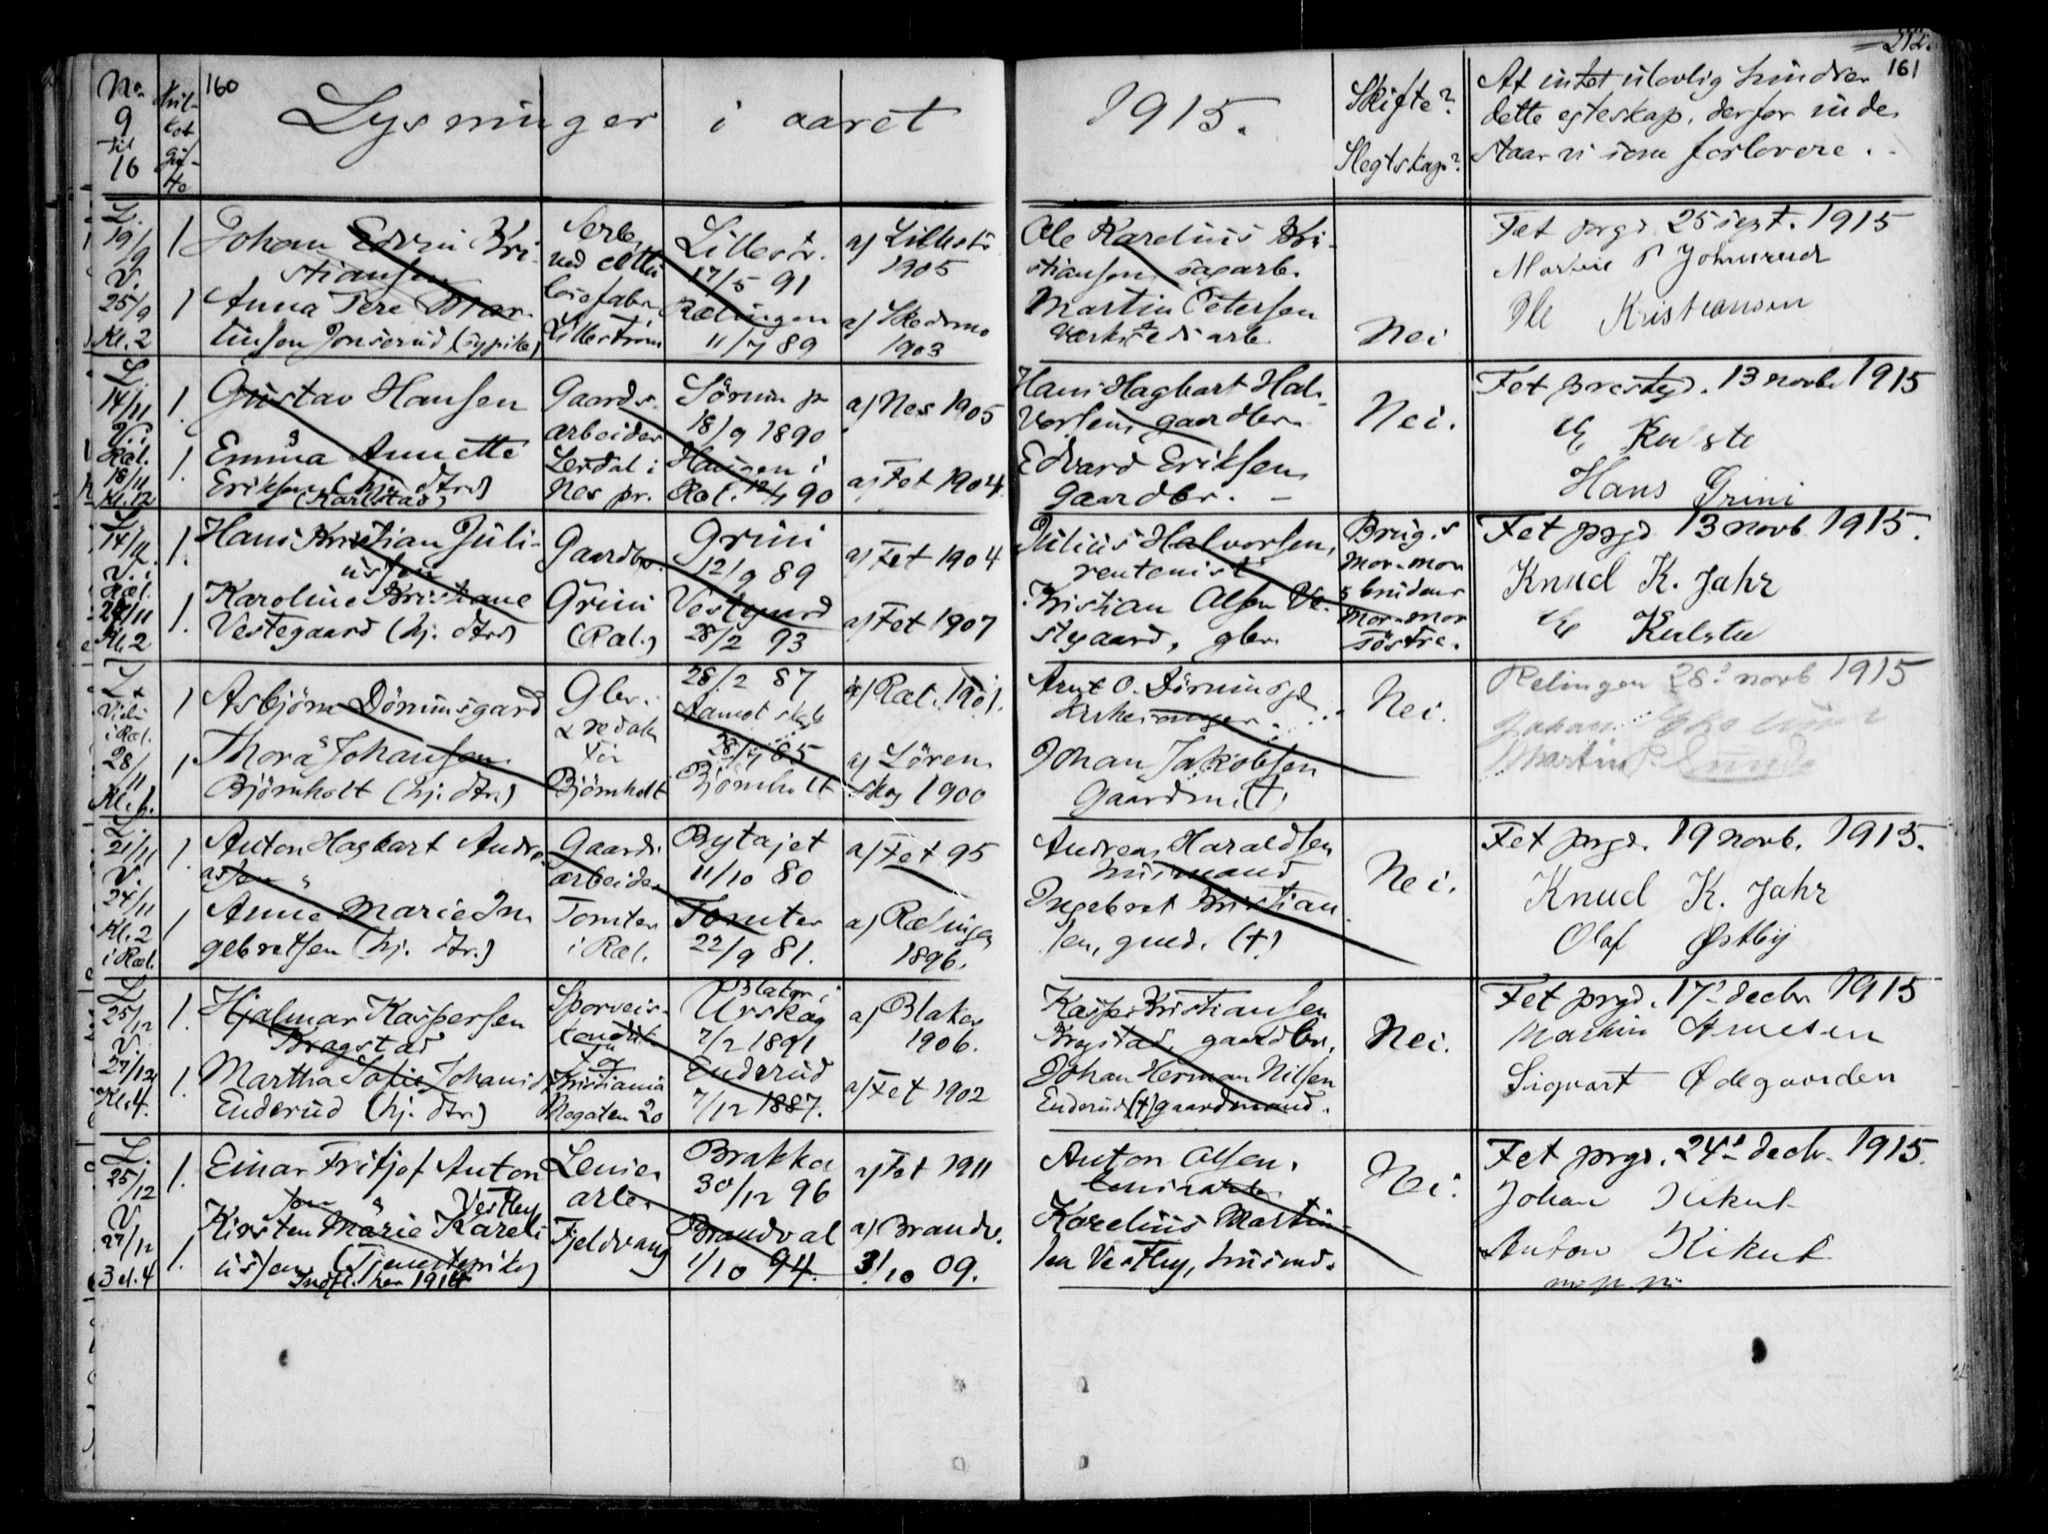 No. 9 til 16
160
Lysninger i aaret 1915.
Skifte?
Slegtskap?
At intet ulovlig hindrer
dette egteskap, derfor inde
staar vi som forlovere.
161
L. 19/9 V. 25/9 Kl. 2
1 Johan Edvin Kri-
stiansen
1 Anna Tere Mar-
tinsen Jonserud (sypike)
Lillestrøm
Lillestr.
17/5 91
Rælingen
11/7 89
a) Lillestr.
1905
a) Skedsmo
1903
Ole Karelius Kri-
stiansen sagarb.
Martin Petersen
værkstedsarb.
Nei
Fet prgd. 25 sept. 1915
Martin P Johnsrud
Ole Kristiansen
L. 14/11 V. i Ræl. 18/11 Kl. 12
1. Gustav Hansen
1. Emma Annette
Eriksen (hj. dtr.)
(Karlstad)
Gaards-
arbeider
Lerdal i
Nes pr.
Sørum pr
18/9 1890
Haugen i
Ræl. 90
a) Nes 1905
a) Fet 1904
Hans Hagbart Hal-
vorsen, gaardbr.
Edvard Eriksen,
Gaardbr.
Nei.
Fet prestgd. 13 novbr 1915
Hans Grini
L. 14/11 V. i Ræl. 24/11 Kl. 2
1. Hans Kristian Juli-
ussen
1. Karoline Kristiane
Vestegaard (hj. dtr.)
Gaardbr.
Grini
(Ræl.)
Grini
12/9 89
Vestgaard
28/2 93
a) Fet 1904
a) Fet 1907
Julius Halvorsen,
rentenist
Kristian Olsen Ve-
stgaard, gbr.
Brudg.s
mor-mor
& brudens
mor-mor
søstre.
Fet prgd 13 novb 1915.
Knud K. Jahr
i Ræl. 28/11 Kl. 6.
1 Asbjørn Dørumsgard
1 Thora Johansen
Bjørnholt (hj. dtr.)
Gbr.
& redak
tør
Bjørnholt
28/2 87
Aamot
85
Bjørnholt
a) Ræl. 1901.
a) Lören-
skog 1900
Arnt O. Dørumsgd
kirkesanger
Johan Jakobsen
Gaardm. (†)
Nei.
Relingen 28. novb 1915
L. 21/11 V. 24/11 Kl. 2 i Ræl.
1. Anton Hagbart Andre-
assen
1 Anne Marie In-
gebretsen (hj. dtr.)
Gaards
arbeider
Tomter
i Ræl.
Bytajet
11/10 80
Tomter
22/9 81.
a) Fet 95
a) Rælingen
1896.
Andreas Haraldsen
husmand
Ingebret Kristian-
sen, gmd. (†)
Nei.
Fet prgd. 19 novb. 1915.
Knud K. Jahr
Olaf Østby
L. 25/12 V. 27/12 Kl. 4.
1. Hjalmar Kaspersen
Bragstad
1. Martha Sofie Johansd
Enderud (hj. dtr.)
Sporveis-
konduk
tør
Kristiania
Mogaten 20
Blaker i
Urskog
7/2 1891
Enderud
7/12 1887.
a) Blaker
1906.
a) Fet 1902
Kasper Kristiansen
Brgstad gaardbr.
Johan Herman Nilsen
Enderud (†) gaardmand.
Nei.
Fet prgd. 17' decbr 1915
Martin Arnesen
Sigvart Ødegaarden
L. 25/12 V. 27/12 3 el. 4
1. Einar Fritjof Anton-
sen Vestby
1. Kirsten Marie Kareli-
ussen (Tjenestepike)
Indfl. her 1914
Lense-
arb.
Fjeldvang
Brakka
30/12 96
Brandval
1/10 94.
a) Fet 1911
a) Brandv.
3/10 09.
Anton Olsen,
lensearb.
Karelius Martin-
sen Vestby, husmd.
Nei.
Fet prgd. 24' decb. 1915.
Johan Kikut
Anton Kikut
m p. p.